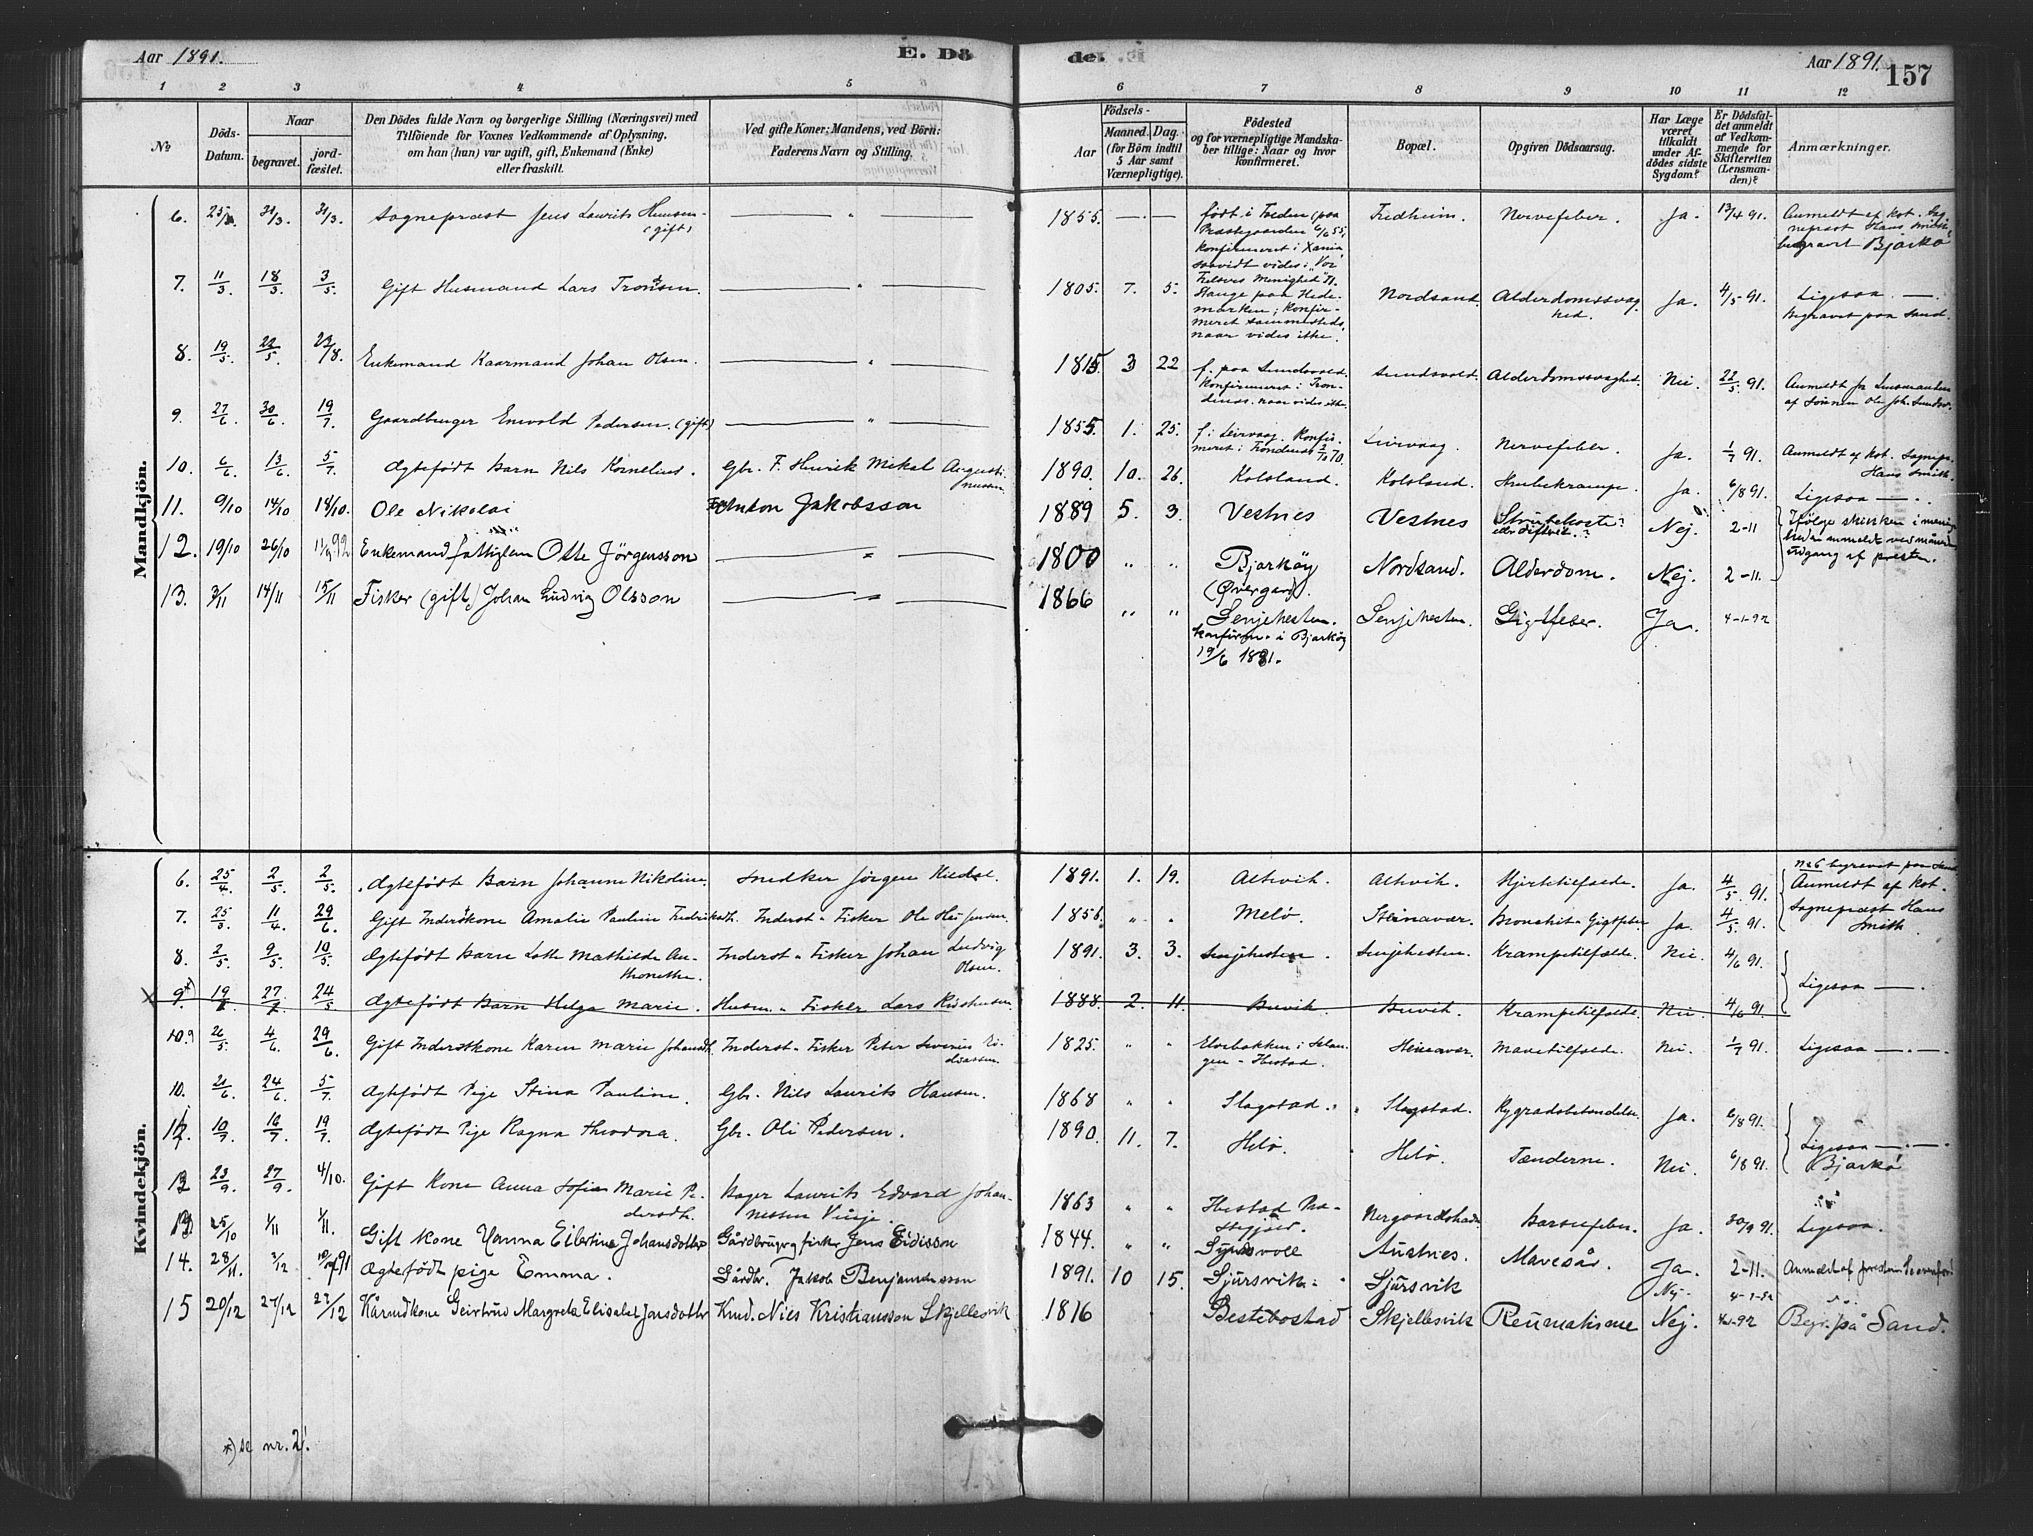 Aar 1891. E. Dö de. Aar 1891. 157
1 2 3 4 5 6 7 8 9 10 11 12
No Döds-Datum. Naar begravet. jordfæstet. Den Dödes fulde Navn og borgerlige Stilling (Næringsvei) med
Tilföiende for Voxnes Vedkommende af Oplysning,
om han (hun) var ugift, gift, Enkemand (Enke)
eller fraskilt.
Ved gifte Koner: Mandens, ved Börn:
Faderens Navn og Stilling.
Födsels-
Aar Maaned. Dag.
(for Börn indtil
5 Aar samt
Værnepligtige).
Födested
og for værnepligtige Mandska-
ber tillige: Naar og hvor
konfirmeret.
Bopæl.
Opgiven Dödsaarsag.
Har Læge
været
tilkaldt
under Af-
dödes sidste
Sygdom?
Er Dödsfal-
det anmeldt
af Vedkom-
mende for
Skifteretten
(Lensman-
den)?
Anmærkninger.
Mandkjön.
6. 31/3. 31/3. Sognepræst Jens Laurits Hansen (gift) — " — 1855. — — født i Treden (paa Præstegaarden 6/6 55, konfirmeret i Xania saavidt vides i "Vor Frelsers Menighed". Fredheim. Nervefeber. Ja. 13/4 91. Anmeldt af Kst. Sognepræst Hans Smith. begravet Bjarkø
7. 11/3. 18/3. 3/5. Gift Husmand Lars Tronsen. — " — 1805. 7. 5. Stange paa Hedemarken; Konfirmeret sammesteds, naar vides ikke. Nordsand. Alderdomssvaghed. Ja. 4/5 91. Ligesaa. — Begravet paa Sand.
8. 19/5. 22/5. Enkemand Kaarmand Johan Olsen. — " — 1815 3 22 f. paa Sundsvold. Konfirmeret i Trondenes. naar vides ikke. Sundsvold. Alderdomssvaghed. Nei. 22/5. 91. Anmeldt for Lensmanden af Sønnen Ole Joh. Sundsv.
9. 27/6. 30/6. 19/7. Gaardbruger Enevold Pedersen. (gift) — " — 1855. 1. 25. f. i Leirvaag. Konfirmeret i Trondenes 70. Leirvaag. Nervefeber. Ja. 1/7 91. Anmeldt af Kst. Sognepr. Hans Smith.
10. 6/6. 13/6. 5/7. Ægtefødt Barn Nils Kornelius. Gbr. F. Henrik Mikal Augustinussen. 1890. 10. 26. Kolsland. Kolsland. Strubekrampe. Ja. 6/8 91. Ligesaa — " .
11. 9/10 14/10 14/10. Ole Nikolai Anton Jakobsson 1889 5. 3. Vestnes Vestnes Strubehoste? eller difteri? Nej. 2-11 Ifølge skikken i menigheden anmeldt ved månedens udgang af presten.
12. 19/10 26/10 Enkemand fattiglem Otte Jörgensson — " — 1800 " " Bjarköy (Øvergard). Nordsand. Alderdom. Nej. 2-11.
13. 3/11 14/11 15/11 Fisker (gift) Johan Ludvig Olsson — " — 1866 " " Senjehesten. konfirm. i Bjarköy 19/6 1881. Senjehesten. Gigtfeber. Ja. 4-1-92
Kvindekjön.
6. 25/4. 2/5. 2/5. Ægtefødt Barn Johanne Nikoline. Snedker Jørgen Hiedal. 1891. 1. 19. Altevik. Altevik. Hjertetilfælde. Ja. 4/5. 91. no 6 begravet paa Sand Anmeldt af Kst. Sognepræst Hans Smith.
7. 25/3. 11/4. 29/6. Gift Inderstkone Amalie Pauline Fredrikdtr. Inderst. Fisker Ole Hei Jensen 1856. " " Melø. Steinavær. Bronchit. Gigtfeber Ja. 4/5. 91.
8. 2/5. 9/5. 10/5. Ægtefødt Barn Lotte Mathilde Anthonette. Inderst. Fisker Johan Ludvig Olsen. 1891. 3. 3. Senjehesten. Senjehesten. Krampetilfælde. Nei. 4/6 91. Ligesaa — .
9*) 24/5 Ægtefødt Barn Helga Marie. Husm. Fisker Lars Kristensen 1888. 2. 11. Buvik. Buvik. Krampetilfælde. Nei. 4/6 91.
10. 9 26/5. 4/6. 29/6. Gift Inderstkone Karen Marie Johansdtr. Inderst. Fisker Peter Severin 1825. " " Elvebakken i Salangen. Ibestad. Steinavær. Mavetilfælde. Nei. 1/7 91. Ligesaa — .
10. 21/6. 24/6. 5/7. Ægtefødt Pige Stina Pauline. Gbr. Nils Laurits Hansen. 1868 " " Slagstad. Slagstad. Rygradsbetændelse. Ja. 6/8 91. Ligesaa — . — Bjarkø
11. 10/7. 16/7. 19/7. Ægtefødt Pige Ragna Theodora. Gbr. Oli Pedersen. 1890. 11. 7. Helø. Helø. Tænderne. Nei. 6/8 91.
12. 23/9. 27/9. 4/10. Gift Kone Anna Sofie Marie Pedersdtr. Bager Laurits Edvard Johannessen 1863 " " Ibestad Nergaardshavn Barselfeber. Ja. 30/9 91. Ligesaa.
13. 25/10 1/11 1/11. Gift kone Hanna Elbertine Johansdotter Gårdbrug. og fisker Jens Eidisson 1844. " " Sundsvoll Austnes. Mavesår. Ja. 2-11. Anmeldt af presten
14. 28/11. 2/12 Ægtefødt pige Emma. Gårdbr. Jakob Benjaminsson 1891. 10 15. Sjursvik. Sjursvik Nej. 4-1-92
15 20/12 27/12 27/12 Kårmdkone Geirtrud Margreta Elisabet Jarsdotter Kmd. Nies Kristiansson Skjellesvik 1816 Bestebostad Skjellesvik Reumatisme Nej. 4-1-92 Begr. på Sand.
*) se nr. 2!